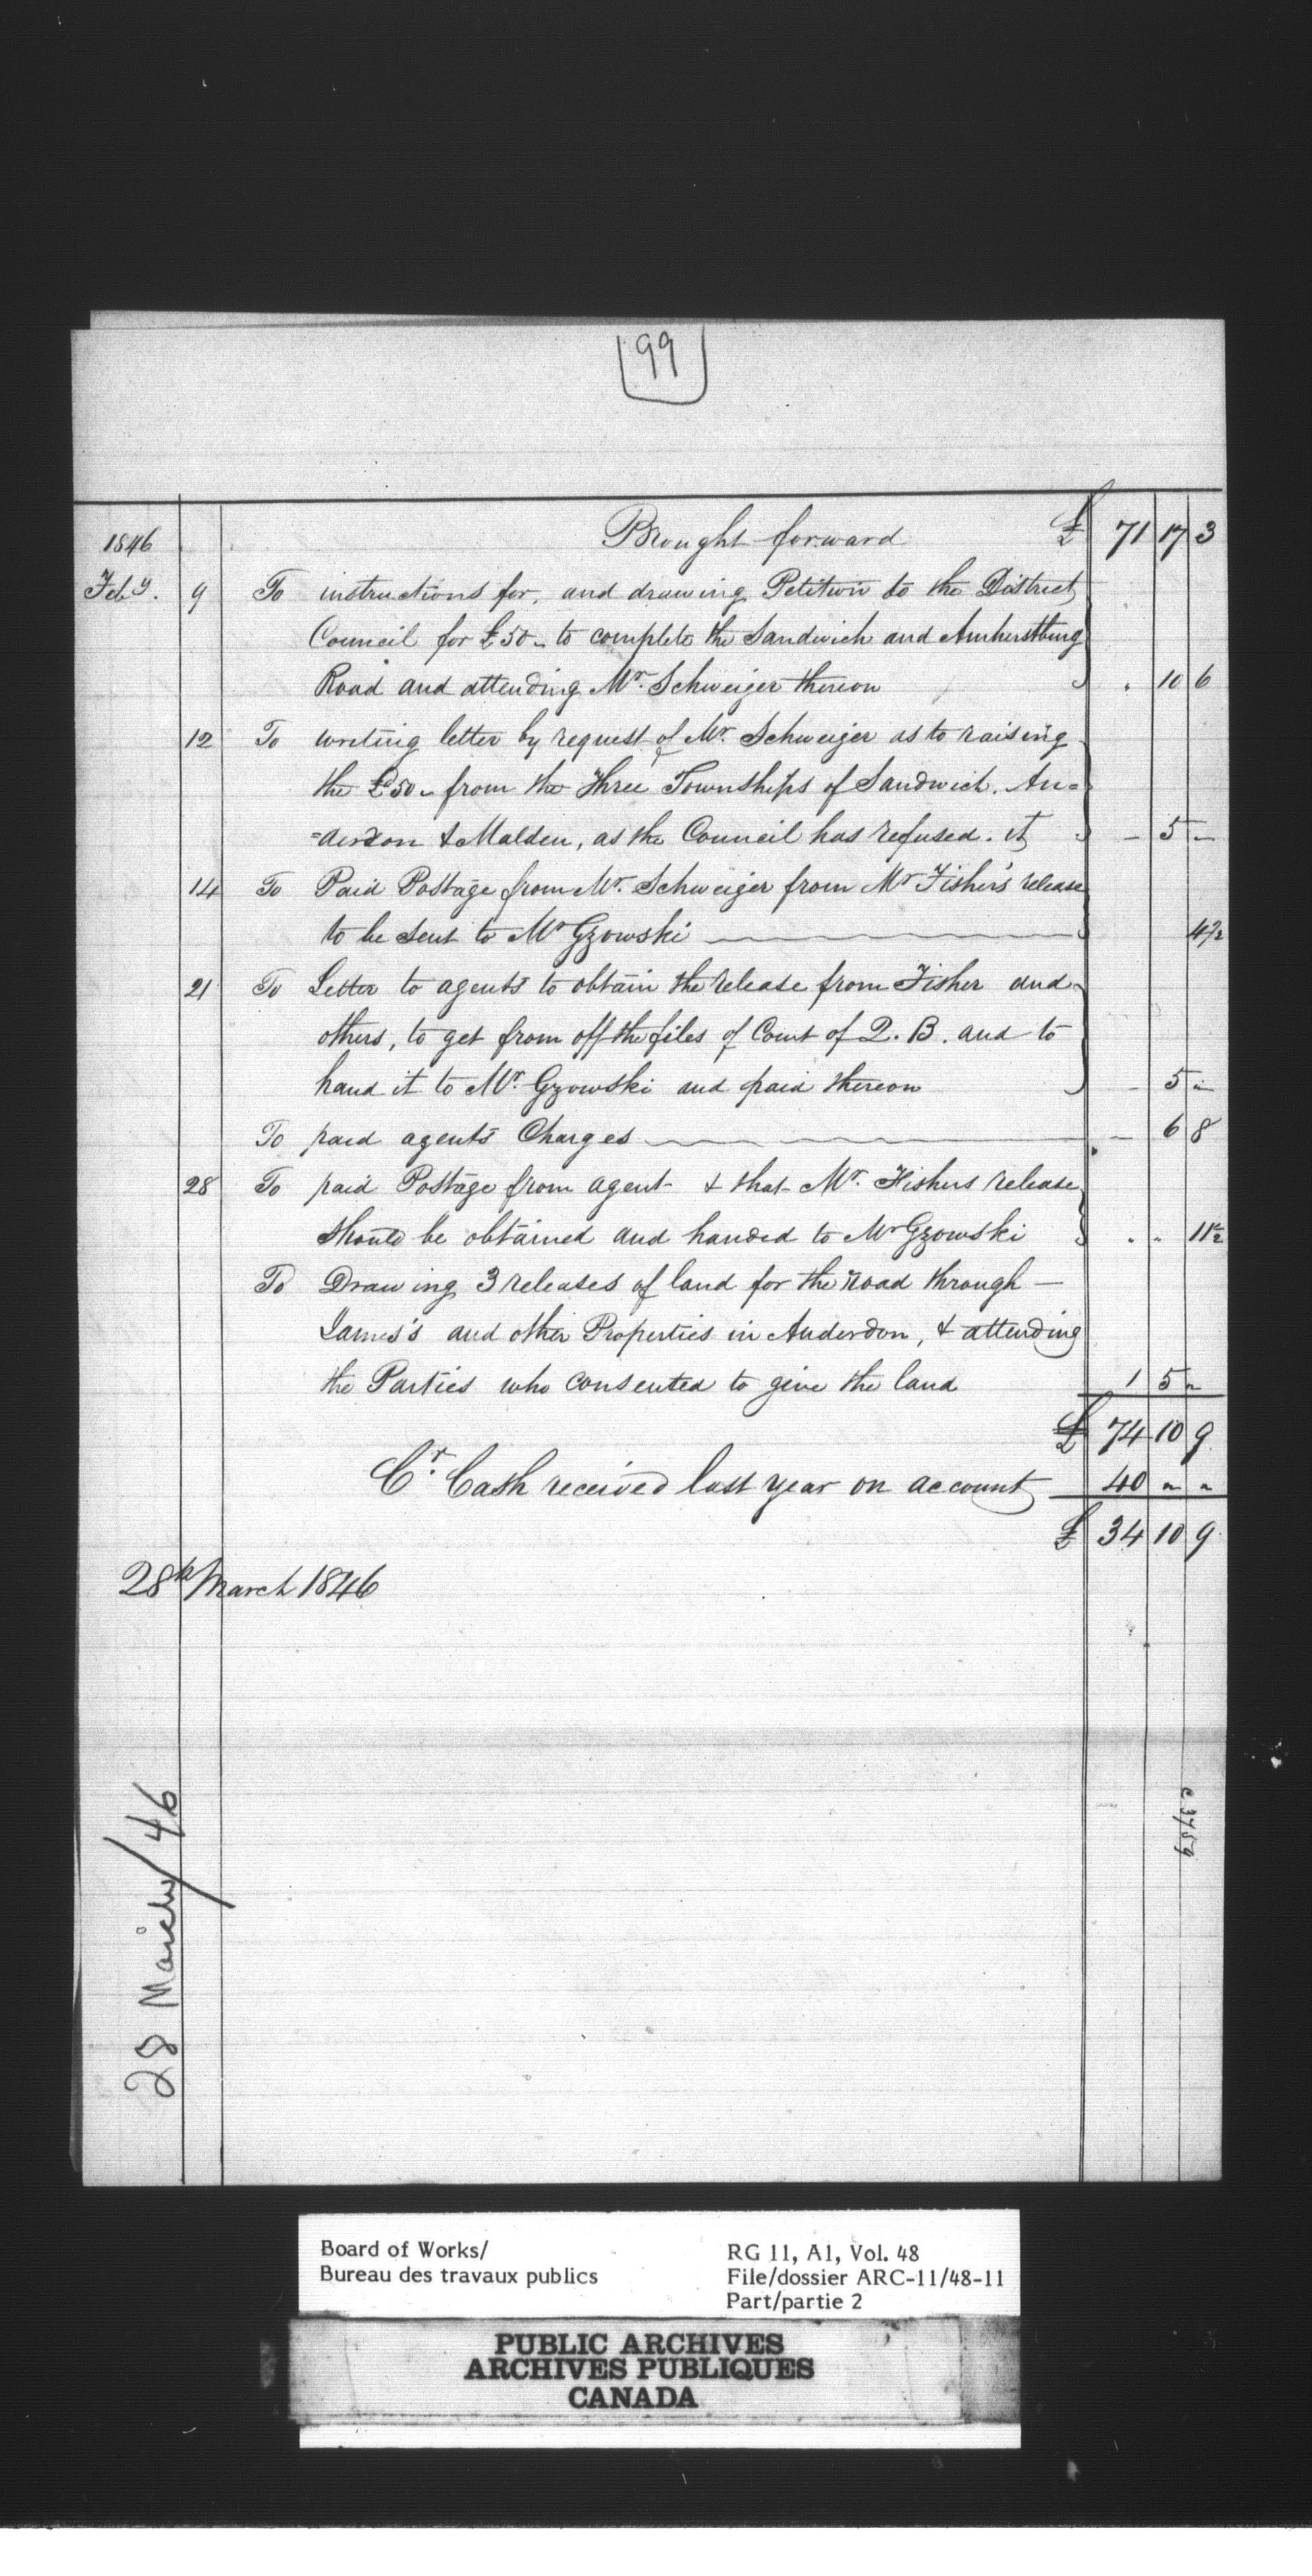 99
Brought forward £ 71 17 3
1846
Feby. 9 To instructions for, and drawing Petition to the District
Council for £50 - to complete the Sandwich and Amherstburg
Road and attending Mr. Schweiger thereon . 10 6
12 To writing letter by request of Mr. Schweiger as to raising
the £50 - from the three Townships of Sandwich. An=
=derdon & Malden, as the Council has refused. it - 5 -
14 To Paid Postage from Mr. Schweiger from Mr Fisher's release
to be sent to Mr Gzowski 4½
21 To Letter to agents to obtain the release from Fisher and
others, to get from off the files of Court of Q. B. and to
hand it to Mr. Gzowski and paid thereon - 5 -
To paid agents Charges - 6 8
28 To paid Postage from agent & that Mr. Fishers release
should be obtained and handed to Mr Gzowski . . 11½
To Drawing 3 releases of land for the road through —
James's and other Properties in Anderdon, & attending
the Parties who consented to give the land 1 5 -
£ 74 10 9
Cr. Cash received last year on account 40 - -
£ 34 10 9
28th March 1846
28 March/46
c 3759
Board of Works/
Bureau des travaux publics
RG 11, A1, Vol. 48
File/dossier ARC-11/48-11
Part/partie 2
PUBLIC ARCHIVES
ARCHIVES PUBLIQUES
CANADA